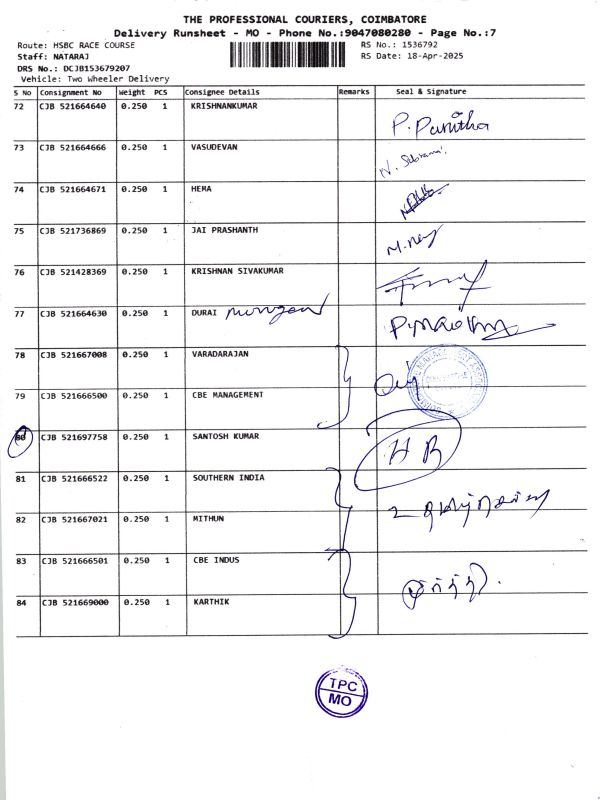 THE PROFESSIONAL COURIERS, COIMBATORE
Delivery Runsheet - MO - Phone No.:9047080280 - Page No.:7
Route: HSBC RACE COURSE
RS No.: 1536792
Staff: NATARAJ
RS Date: 18-Apr-2025
DRS No.: DCJB153679207
Vehicle: Two Wheeler Delivery
S No Consignment No Weight PCS Consignee Details Remarks Seal & Signature
72 CJB 521664640 0.250 1 KRISHNANKUMAR P. Panitha
73 CJB 521664666 0.250 1 VASUDEVAN
74 CJB 521664671 0.250 1 HEMA
75 CJB 521736869 0.250 1 JAI PRASHANTH
76 CJB 521428369 0.250 1 KRISHNAN SIVAKUMAR
77 CJB 521664630 0.250 1 DURAI
78 CJB 521667008 0.250 1 VARADARAJAN
79 CJB 521666500 0.250 1 CBE MANAGEMENT
80 CJB 521697758 0.250 1 SANTOSH KUMAR H R
81 CJB 521666522 0.250 1 SOUTHERN INDIA
82 CJB 521667021 0.250 1 MITHUN
83 CJB 521666501 0.250 1 CBE INDUS
84 CJB 521669000 0.250 1 KARTHIK
TPC
MO